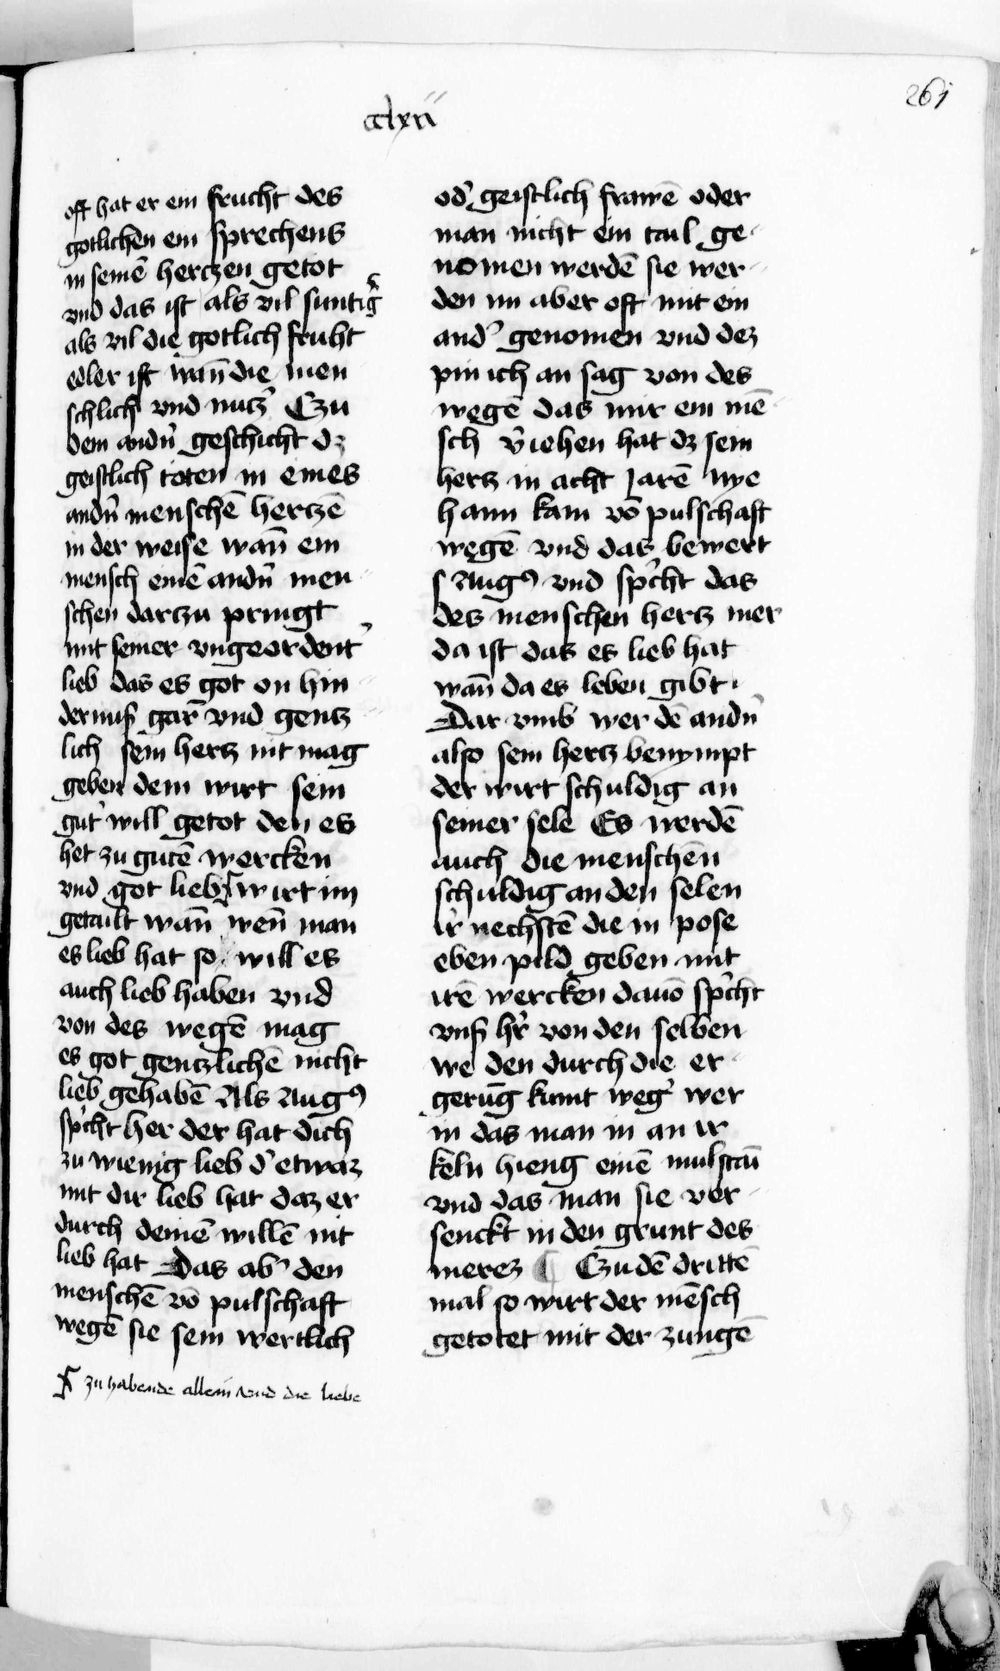 261
cclxii
oft hat er ein frucht des
gotlichen ein sprechens
in seinē herczen getot
vnd das ist als vil suntig̉
als vil die gotlich fruht
edler ist wañ die men
schlich vnd nutz̉ Czu
dem andn̉ geschicht dz
geistlich toten in eines
andn̉ menschē hertzē
in der weise wañ ein
mensch einē andn̉ men
schen darzu pringt
mit seiner vngeordent̉
lieb das es got on hin
dernuß gar̄ vnd gentz
lich sein hertz nit mag
geben dem wirt sein
gut̉ will getot den es
het zu gutē wercken
vnd got lieb wirt im
getailt wañ weñ man
es lieb hat so will es
auch lieb haben vnd
von des wegē mag
es got gentzlichē nicht
lieb gehabē Als Augꝰ
sp̉cht her der hat dich
zu wienig lieb d̉ etwaz
mit dir lieb hat daz er
durch deinē willē nit
lieb hat Das ab̉ den
menschē vō pulschaft
wegē sie sein wertlich
zu habende allein vnd die liebe
od̉ geistlich frawē oder
man nicht ein tail ge
nomen werdē sie wer
den im aber oft mit ein
and̉ genomen vnd dez
pin ich an sag von des
wegē das mir ein mē
sch v̉iehen hat dz sein
hertz in acht Jarē nye
haim kam vō pulschaft
wegē vnd das bewert
s Augꝰ vnd sp̉cht das
des menschen hertz mer
da ist das es lieb hat
wañ da es leben gibt
Dar vmb wer dē andn̉
also sein hertz benympt
der wirt schuldig an
seiner sele Es werdē
auch die menschen
schuldig an den selen
ir̉ nechstē die in pose
eben pild geben mit
irē wercken dauō sp̉cht
vnß hr̉ von den selben
we den durch die er
gerūg kumt weg̉ wer
in das man in an ir
keln hieng einē mulstaī
vnd das man sie ver
senckt in den grunt des
merez ¶ Czu dē drittē
mal so wirt der mēsch
getotet mit der zungē